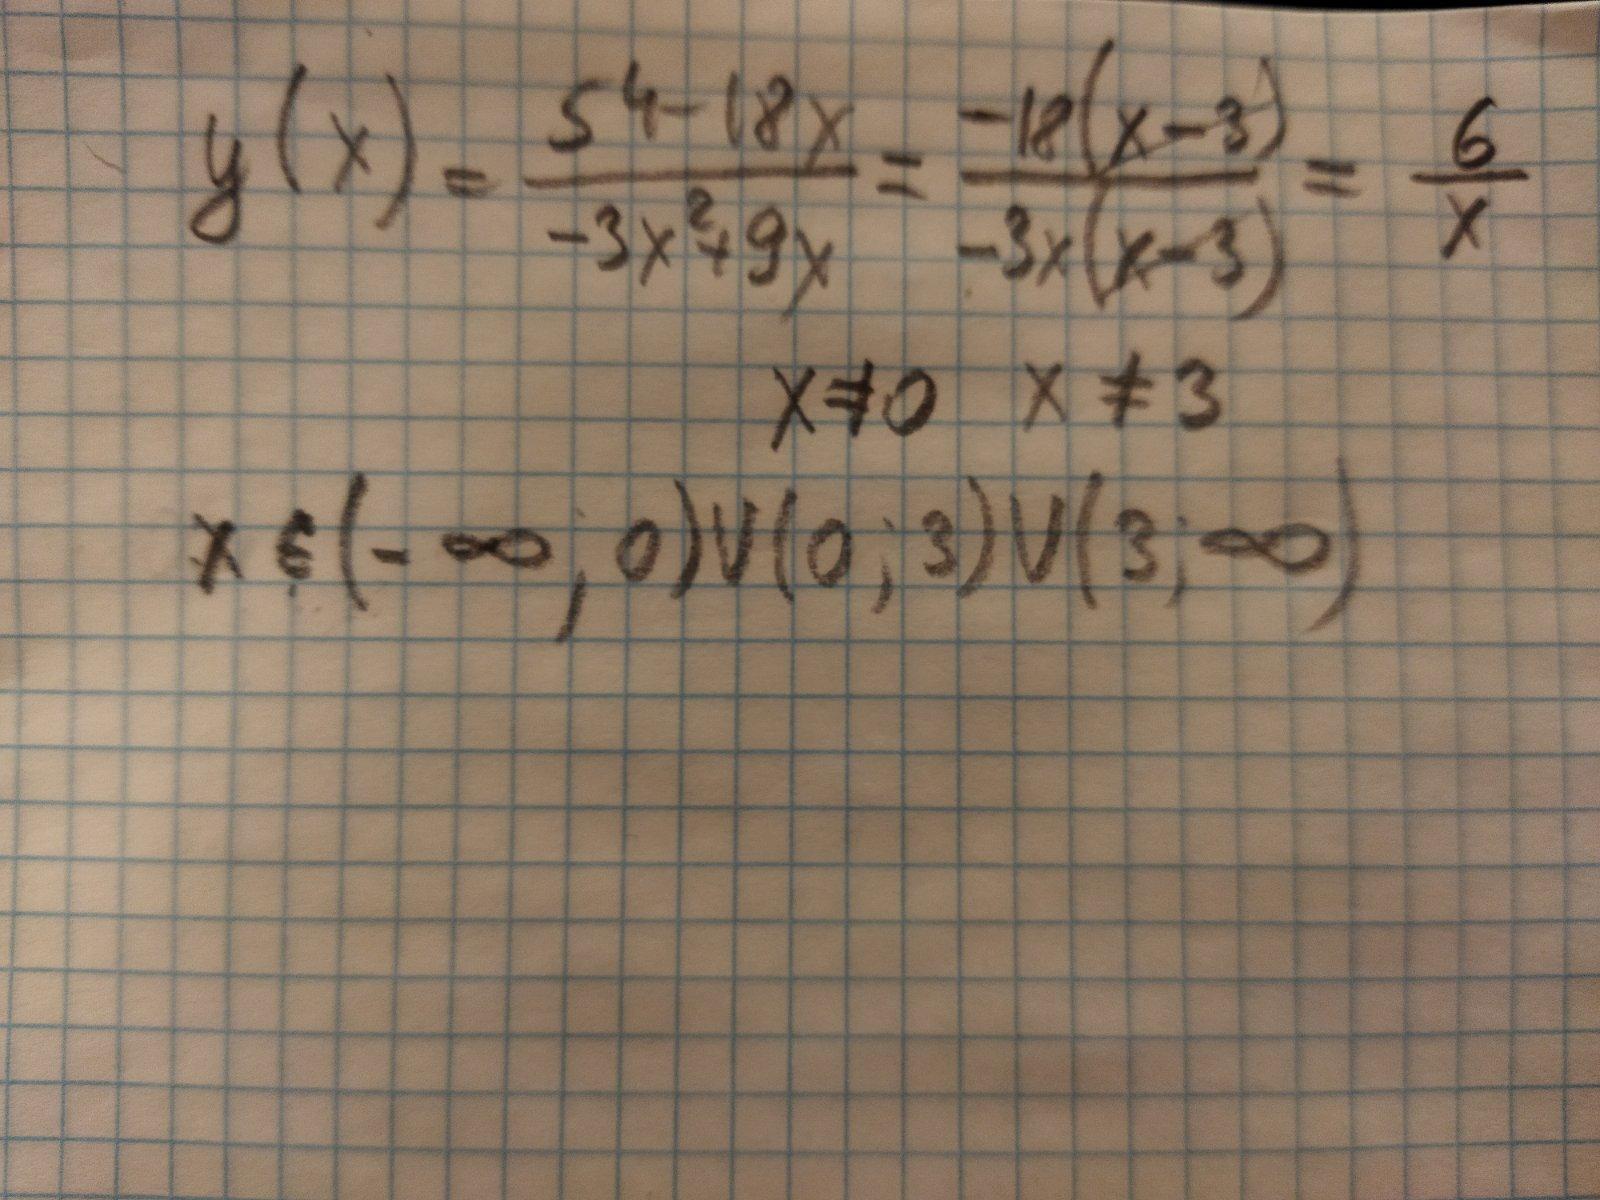 y(x) = \frac{54-18x}{-3x²+9x} = \frac{-18(x-3)}{-3x(x-3)} = \frac{6}{x}
x≠0 x ≠ 3
x ∈ (-∞; 0) V (0; 3) V (3; ∞)